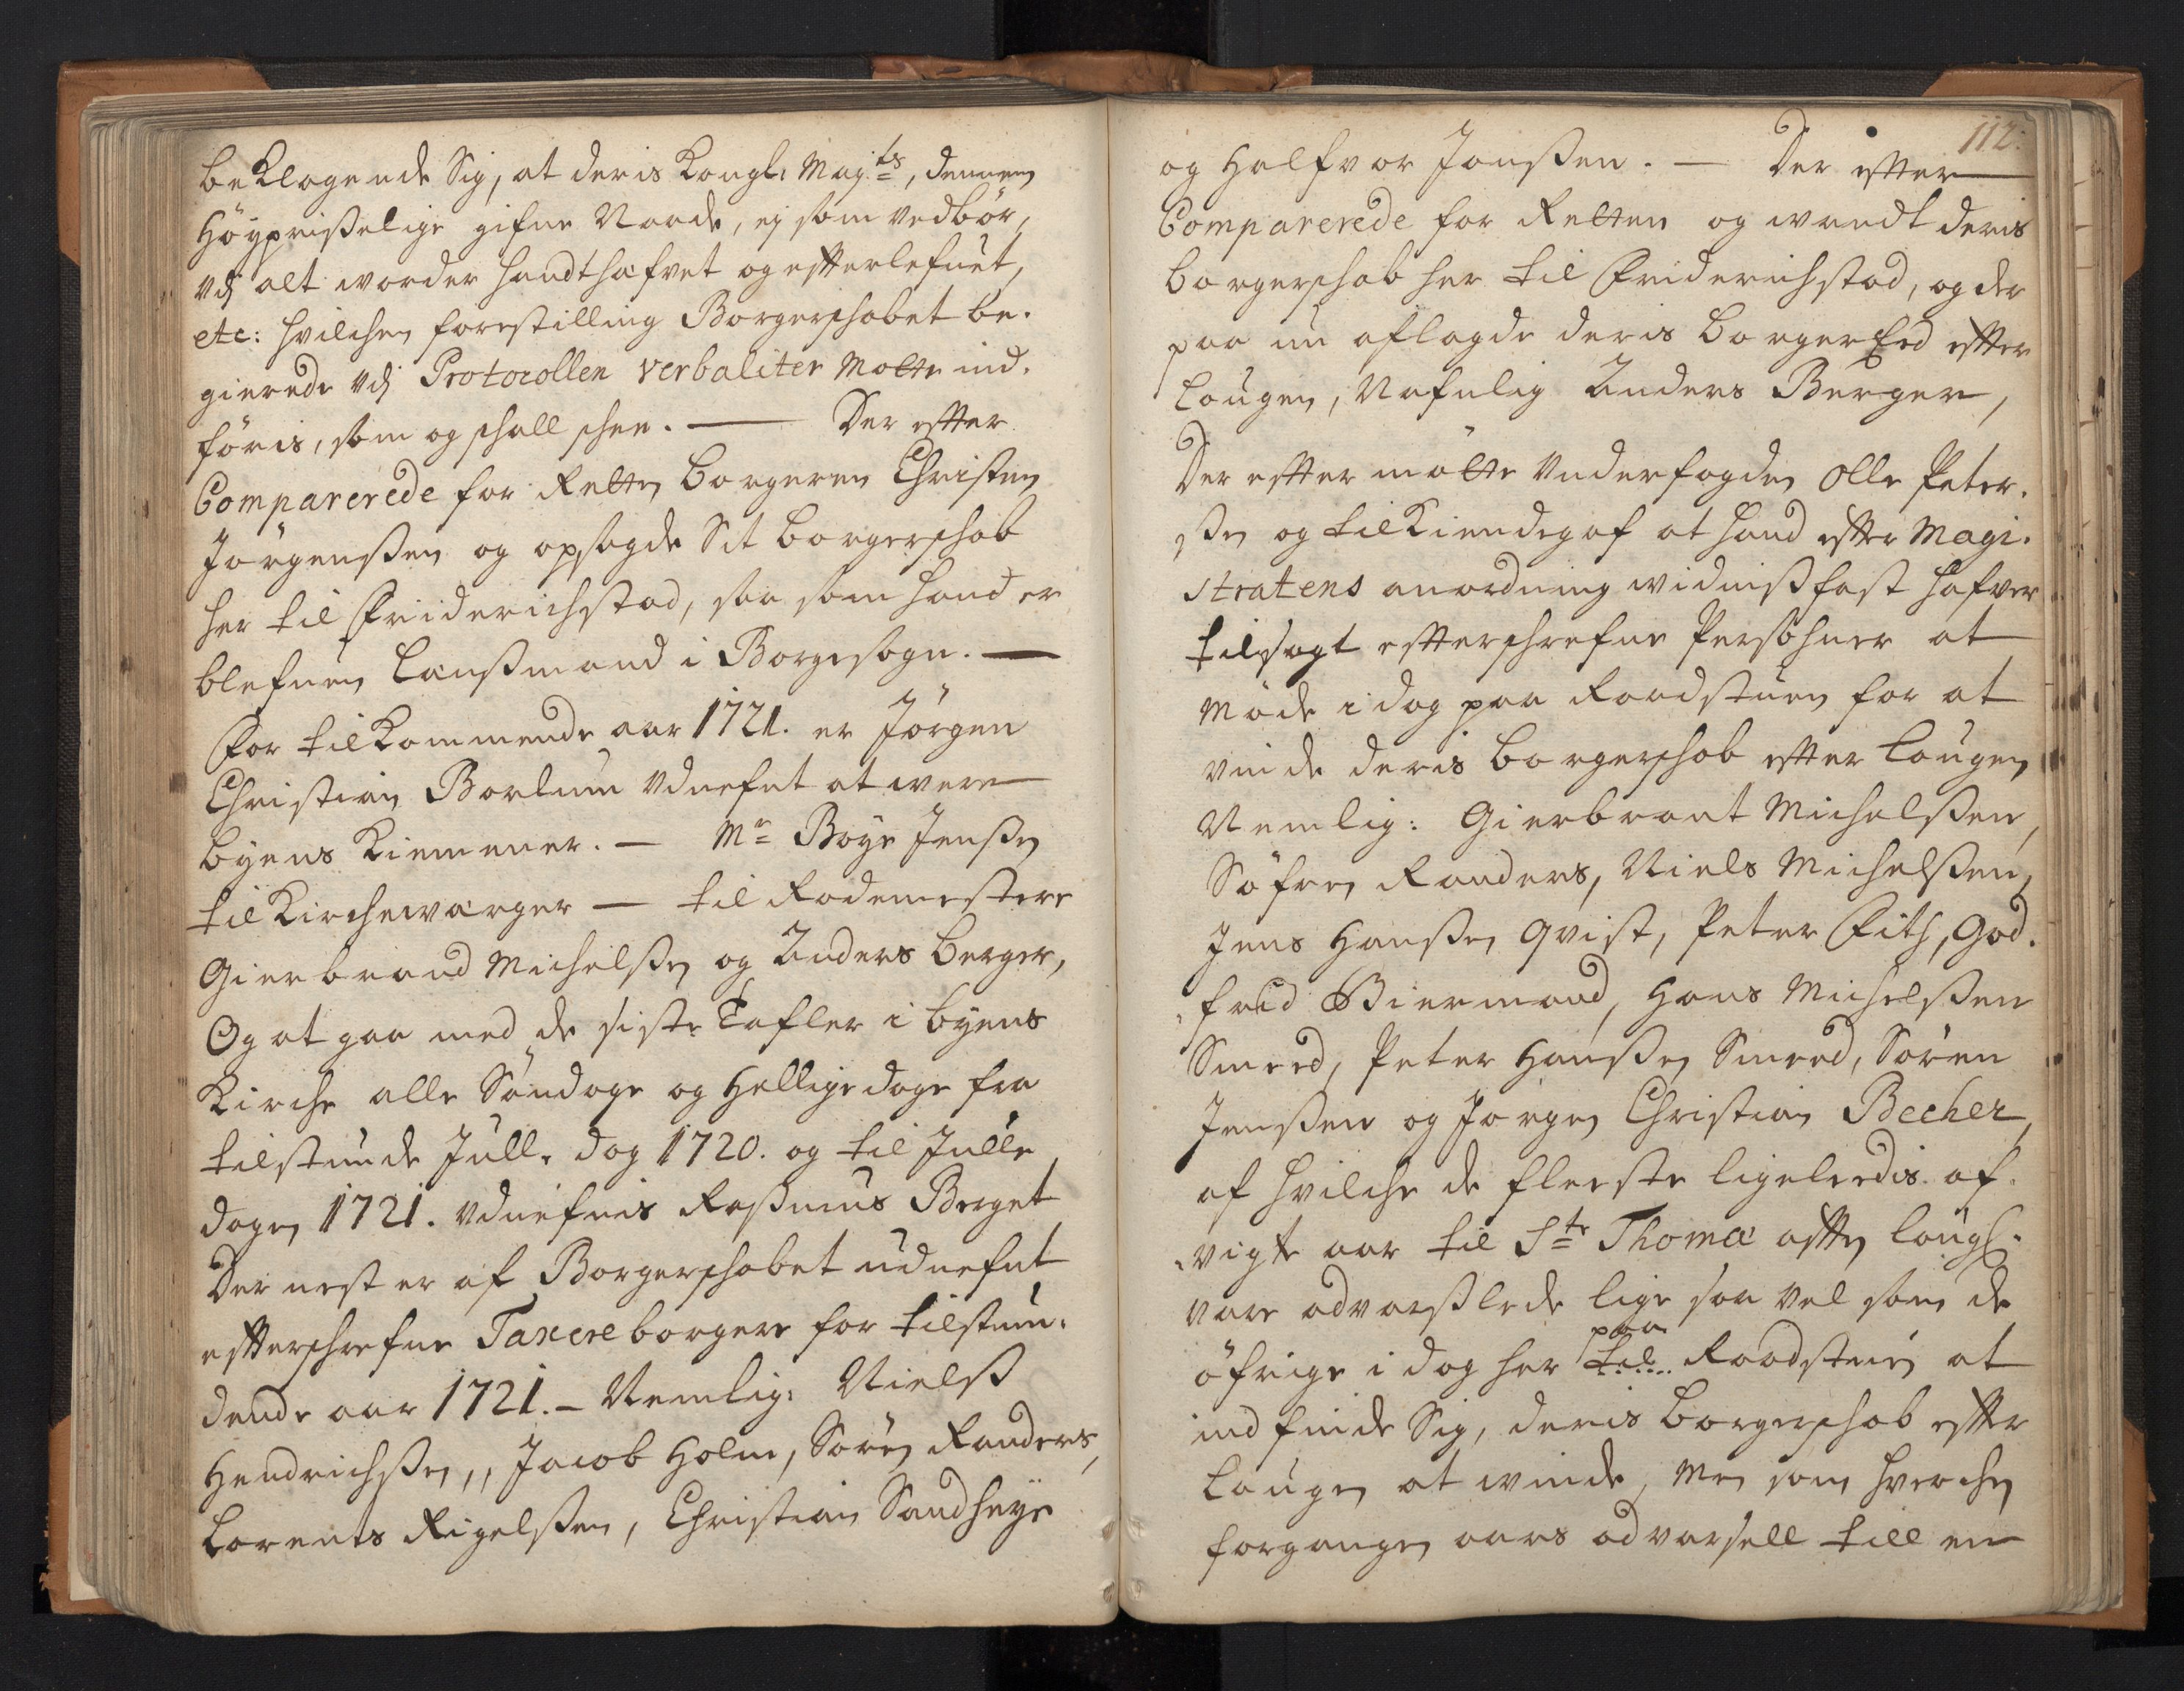 beKlagende Sig, at deris Kongl: Maj:ts, dennem
Høyprißelige gifne Naade, ej som vedbør,
vdj alt worder handthafvet og efterlefuet,
etc: hvilchen forestilling Borgerschabet be-
gierede vdj Protocollen verbaliter Motte ind-
føris, som og schall schee. — Der efter
Comparerede for Retten borgeren Christen
Jørgenßen og opsagde Sit borgerschab
her til Friderichstad, saa som hand er
blefuen Lænßmand i Borgesogn. —
For tilKommende aar 1721. er Jørgen
Christian Borlum vdnefnt at were
byens Kiemener. — Mr Boye Jenßen
til Kirchewærger — til Rodemestere
Gierbrand Michelßen og Anders berger,
Og at gaa med de siste Tafler i byens
Kirche alle Søndage og Helligedage fra
tilstunde Jull. dag 1720. og til Julle
dagen 1721. vdnefnis Raßmus Berget
Der nest er af Borgerschabet udnefnt
efterschrefne Taxereborgere for tilstun-
dende aar 1721. — Nemlig: Nielß
Hendrichßen,, Jacob Holm, Sören Randers,
Lorents Rigelßen, Christian Sandheye
112.
og Halfvor Jonßen. — Der efter
Comparerede for Retten og wandt deris
borgerschab her til Friderichstad, og der
paa nu aflagde deris borgerEed efter
Lougen, Nafnlig Anders Burger,
Der efter mötte Underfogden Olle Peter-
ßen og tilKiendegaf at hand efter Magi-
stratens anordning widnißfast hafver
tilsagt efterschrefne Persohner at
Møde i dag paa Raadstuen for at
vinde deris borgerschab efter Lougen
Nemlig: Gierbrant Michelßen,
Söfren Randers, Niels Michelßen,
Jens Hanßen Qvist, Peter Fith, God-
fred Biermand, Hans Michelßen
Smeed, Peter Hanßen Smeed, Sören
Jenßen og Jørgen Christian Becher,
af hvilche de fleeste ligeleedis af-
vigte aar til Ste Thomæ aften lougl.
vare advarßlede lige saa vel som de
öfrige i dag her til paa Raadstuen at
indfinde Sig, deris borgerschab efter
Lougen at winde, Men som hverchen
forgangen aars advarsell till en